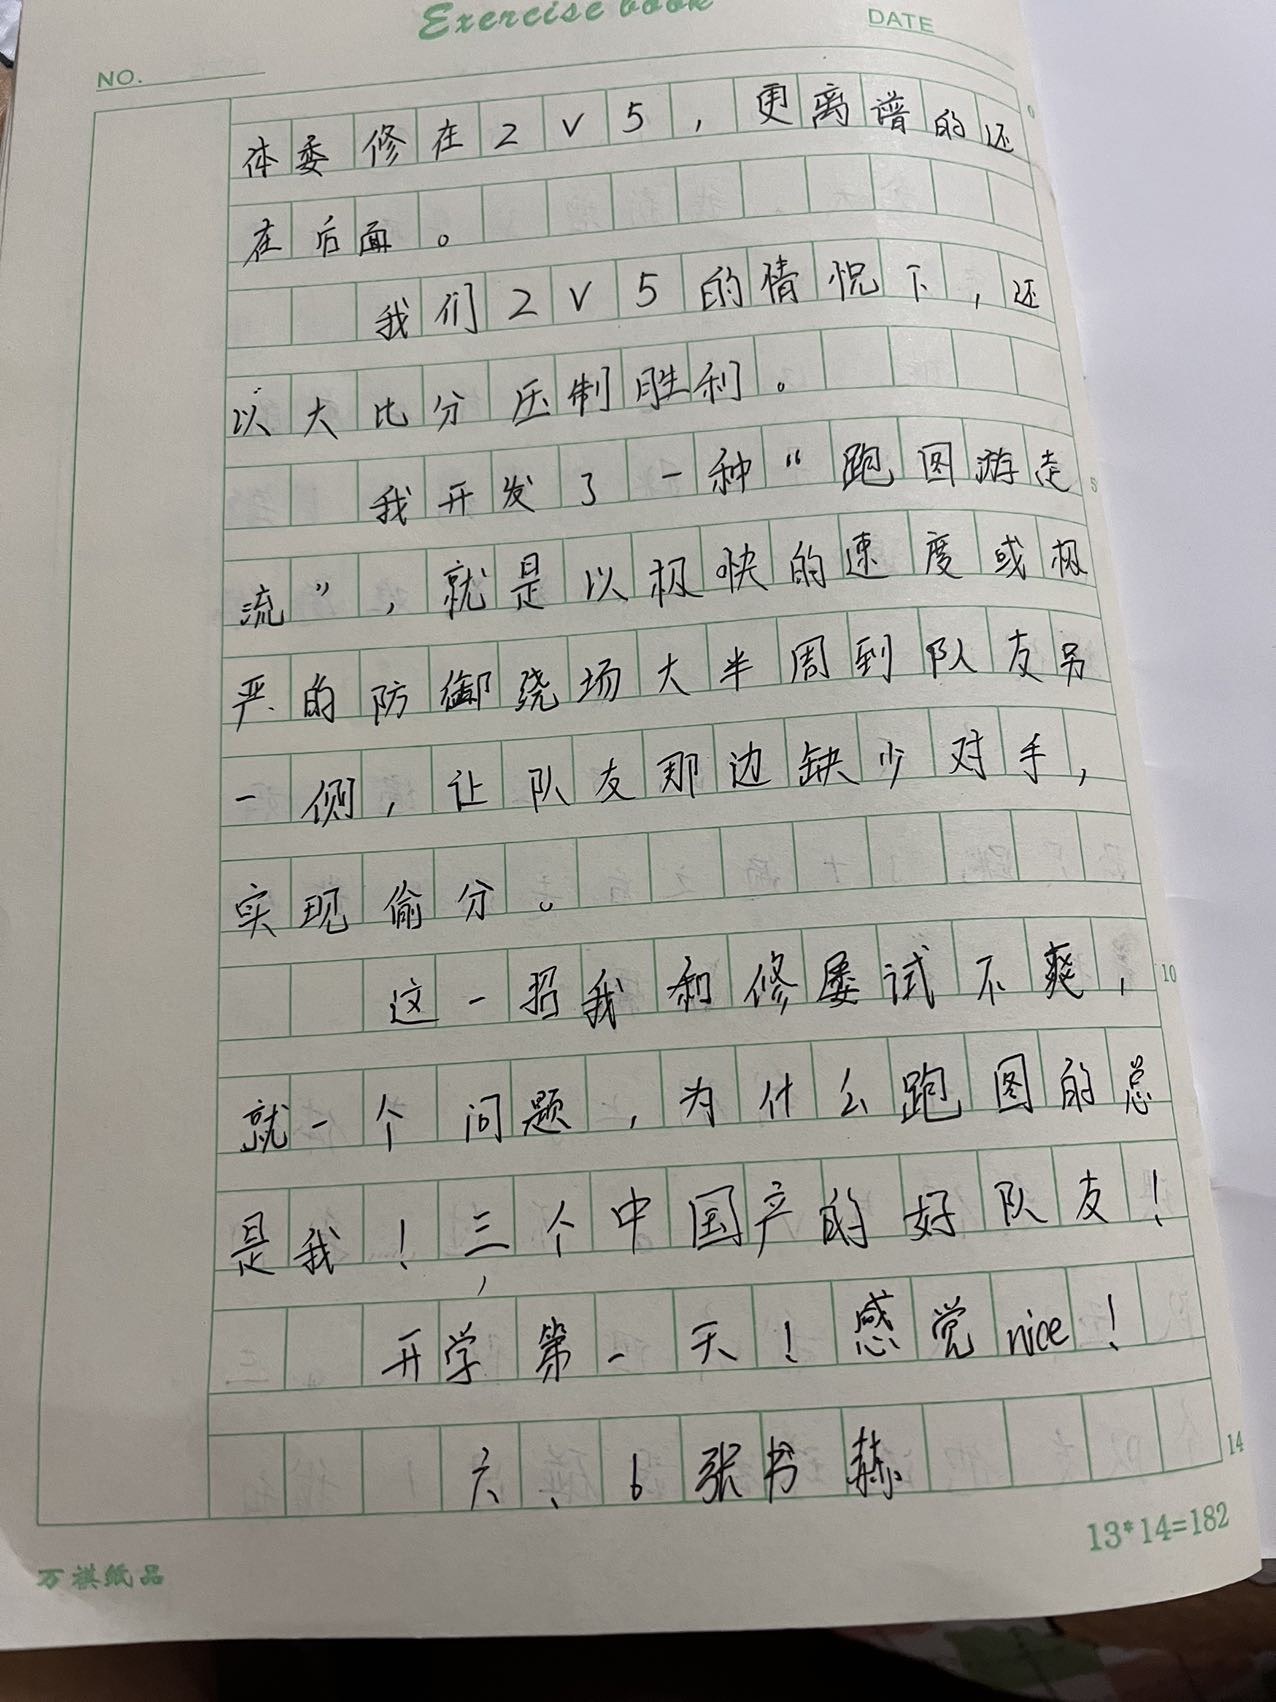 Exercise book
NO.
DATE
体委修在2V5，更离谱的还
在后面。
我们2V5的情况下，还
以大比分压制胜利。
我开发了一种“跑图游走
流”，就是以极快的速度或极
严的防御绕场大半周到队友另
一侧，让队友那边缺少对手，
实现偷分。
这一招我和修屡试不爽，
就一个问题，为什么跑图的总
是我！三个中国产的好队友！
开学第一天！感觉nice！
六、6张书赫
5
10
14
13*14=182
万祺纸品